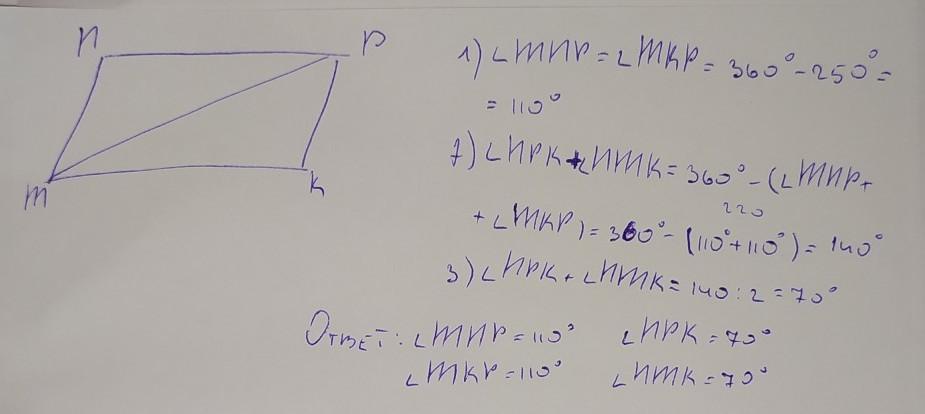 n p
m k
1) ∠MNP = ∠MKP = 360° - 250° =
= 110°
2) ∠NPK + ∠NMK = 360° - (∠MNP +
220
+ ∠MKP) = 360° - (110° + 110°) = 140°
3) ∠NPK + ∠NMK = 140 : 2 = 70°
Ответ: ∠MNP = 110° ∠NPK = 70°
∠MKP = 110° ∠NMK = 70°